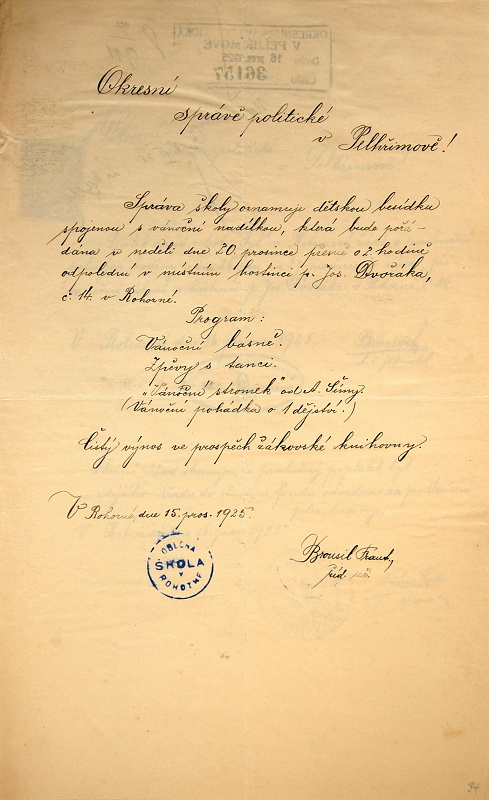 Okresní
správě politické
v Pelhřimově!
Správa školy oznamuje dětskou besídku
spojenou s vánoční nadílkou, která bude pořá-
dána v neděli dne 20. prosince přesně o 2. hodině
odpolední v místním hostinci p. Jos. Dvořáka,
č. 14. v Rohozné.
Program:
Vánoční básně.
Zpěvy s tanci.
"Vánoční stromek" od A.
(Vánoční pohádka o 1 dějství.)
Čistý výnos ve prospěch žákovské knihovny.
V Rohozné, dne 15. pros. 1925.
OBECNÁ
ŠKOLA
V
ROHOZNÉ
Brousil Frant,
34